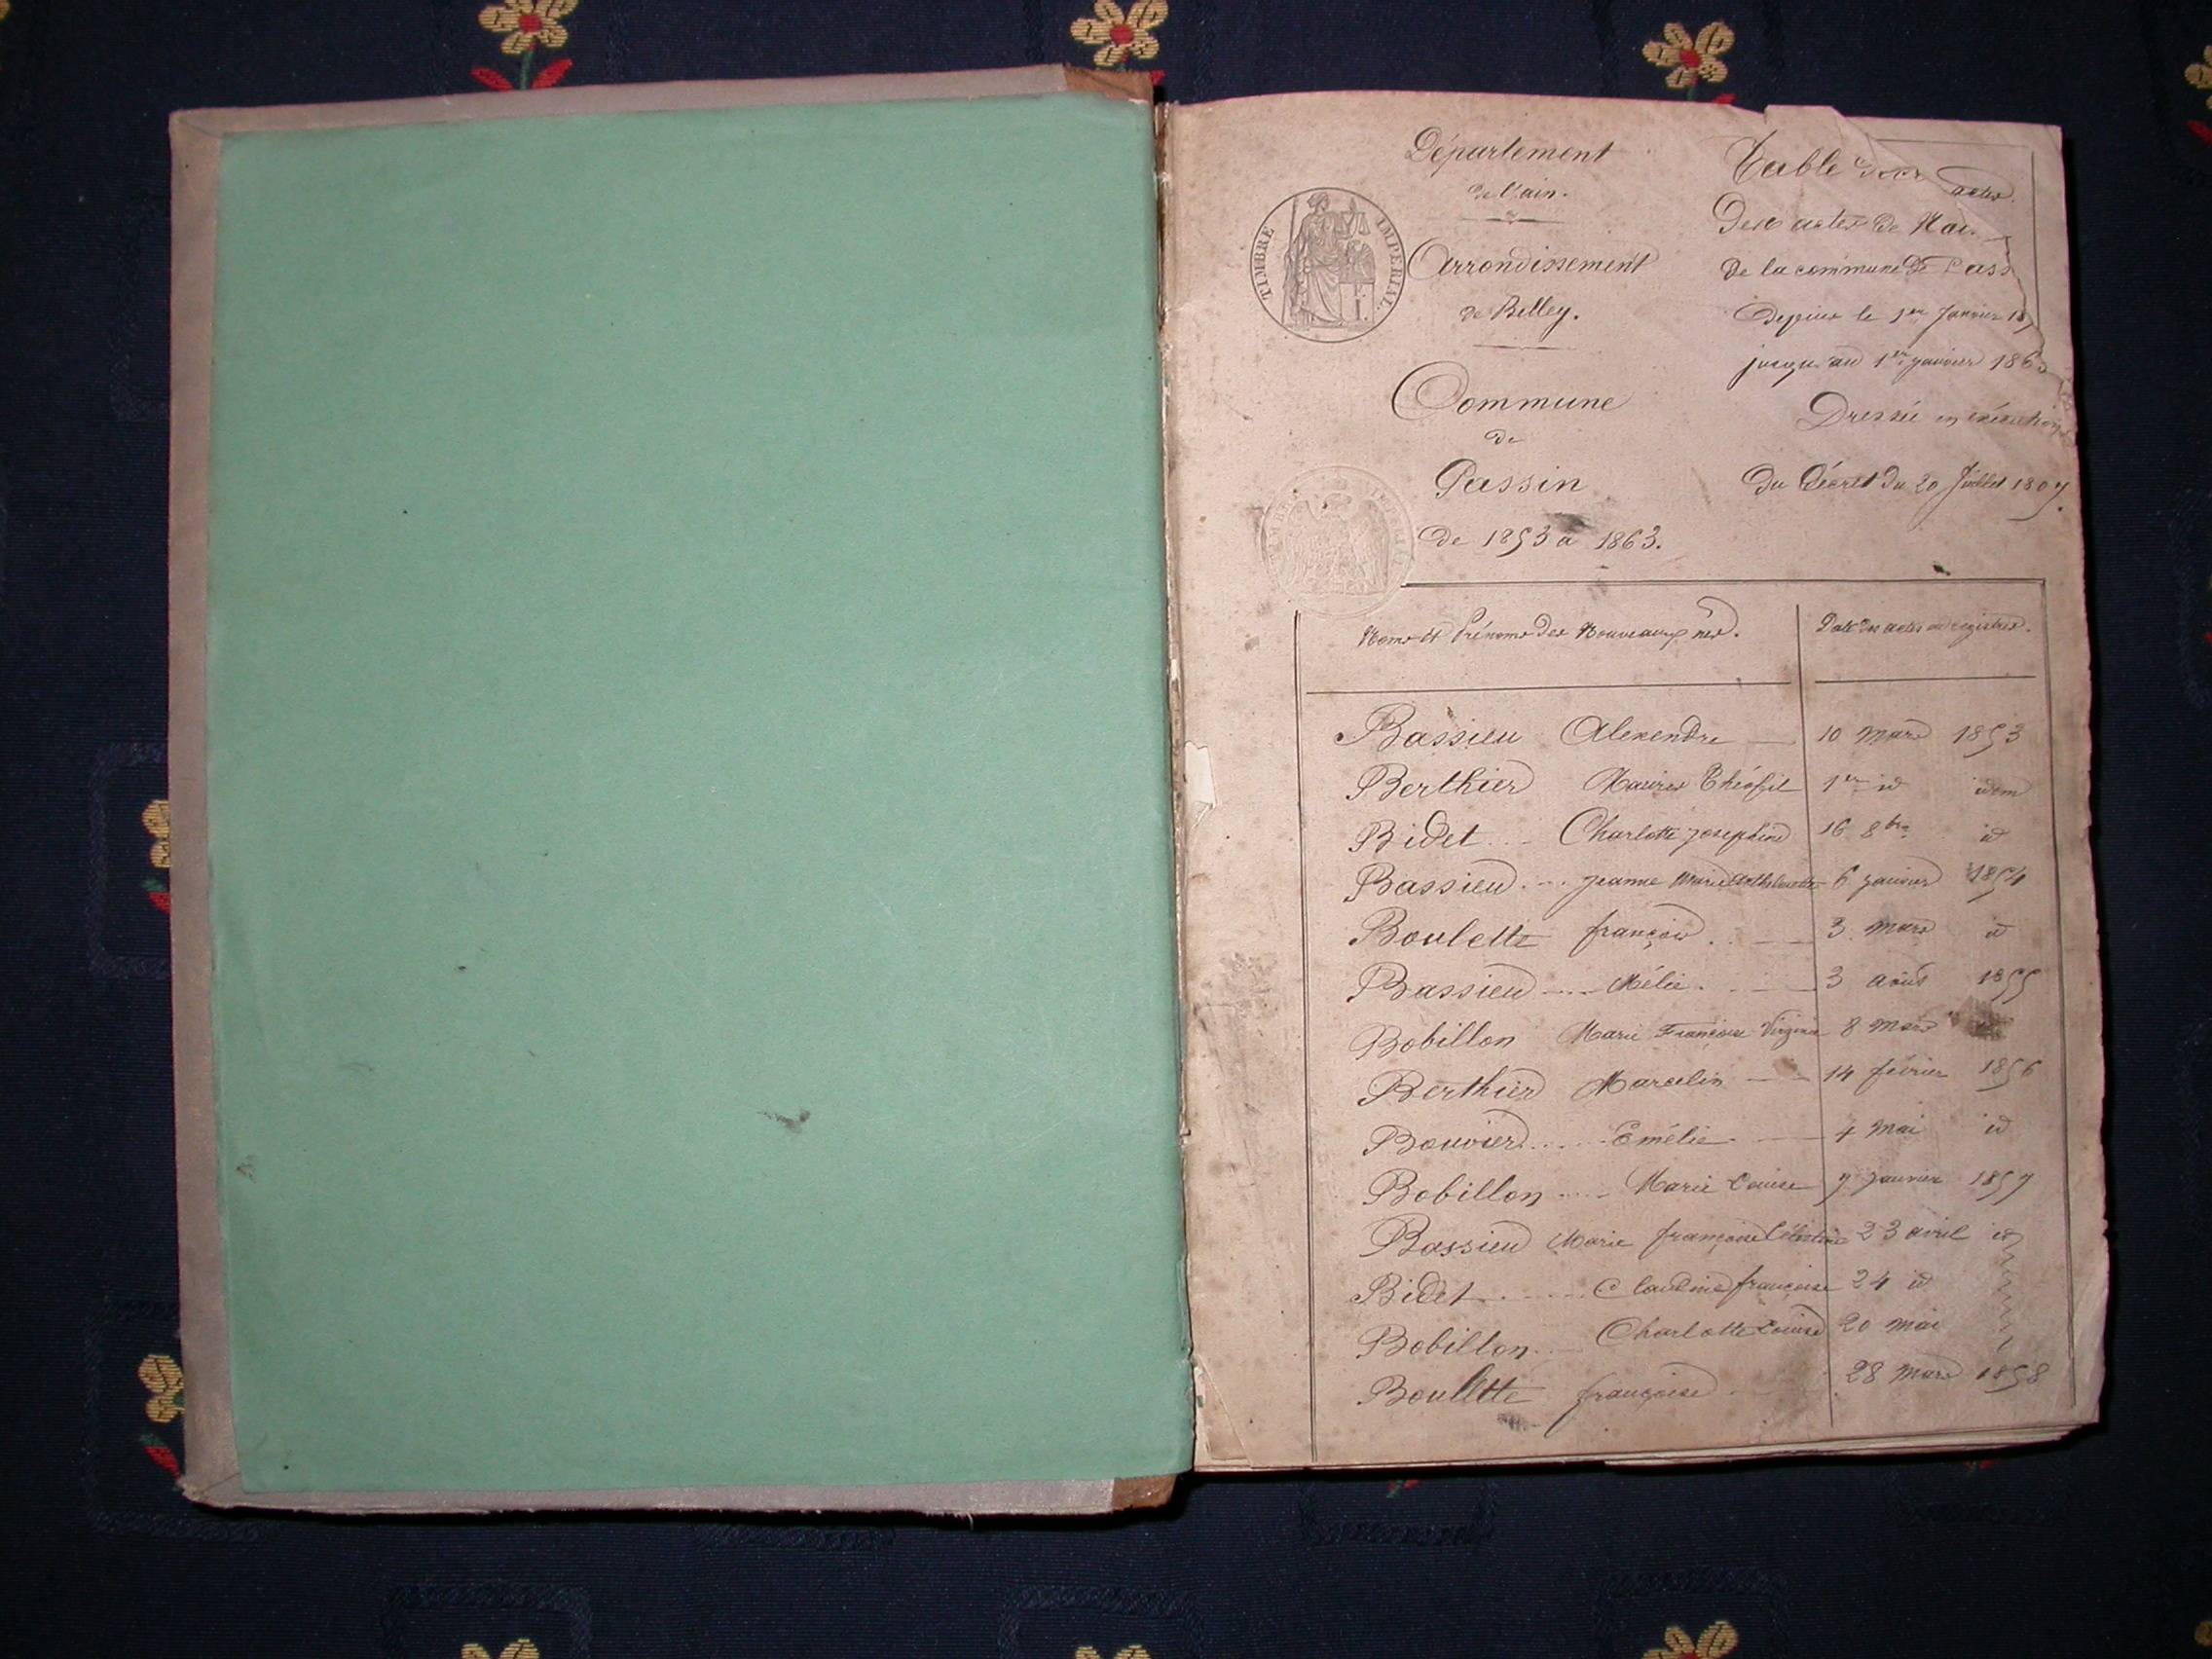 Département
de l'ain.
Arrondissement
de Belley.
Commune
de
Passin
de 1853 a 1863.
TIMBRE IMPERIAL.
Table
actes
Des actes de Nai
de la commune de Pass
Depuis le 1er Janvier 18
jusqu'au 1er janvier 186
Dressée en exécution
du Décret du 20 Juillet 1807.
Noms et Prénoms des Nouveaux nés. Date des actes au registres.
Bassieu Alexendre 10 mars 1853
Berthier Théofil 1er id idem
Bidet Charlotte josephine 16 8bre id
Bassieu jeanne Marie 6 janvier 1854
Boulette françois 3 mars id
Bassieu Mélie 3 août 1855
Bobillon Marie Françoise Virginie 8 mars
Berthier Marcelin 14 février 1856
Bouvier Emélie 4 mai id
Bobillon Marie Louise 7 janvier 1857
Bassieu Marie françoise Célestine 23 avril id
Bidet Claudine françoise 24 id
Bobillon Charlotte Louise 20 mai
Boullette françoise 28 mars 1858